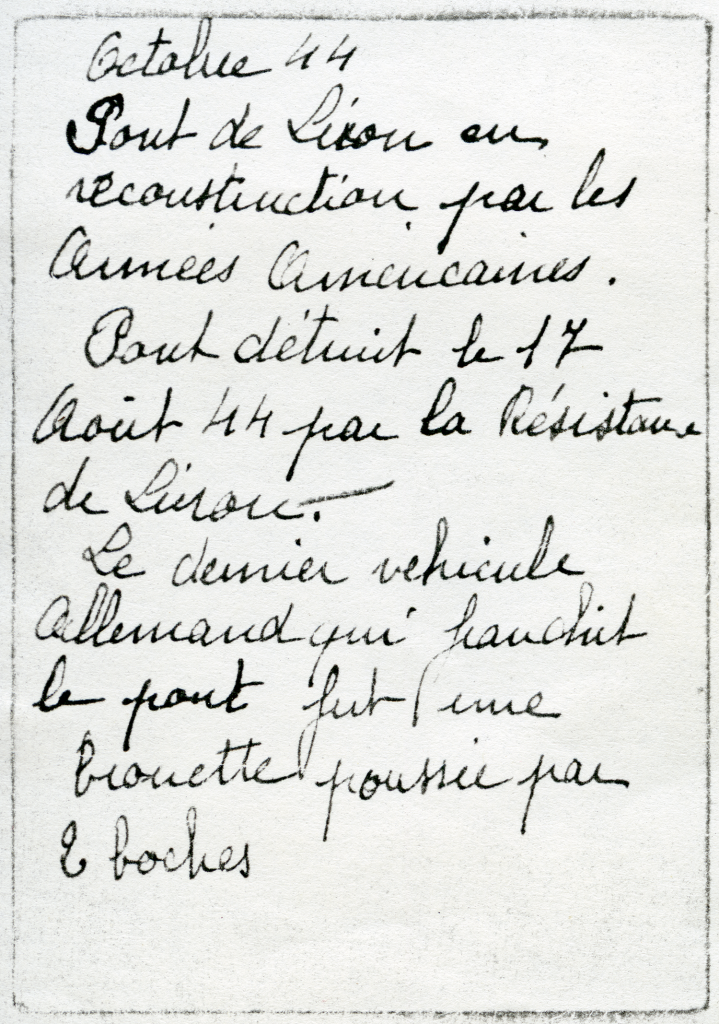 Octobre 44
Pont de Livron en
reconstruction par les
Armées Américaines.
Pont détruit le 17
Août 44 par la Résistance
de Livron.
Le dernier vehicule
Allemand qui franchit
le pont fut une
brouette poussée par
2 boches